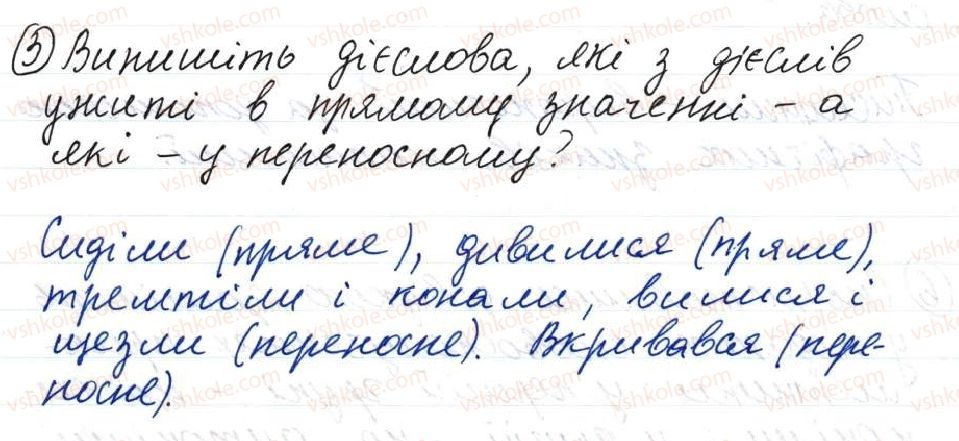 ③ Випишіть дієслова, які з дієслів
ужиті в прямому значенні – а
які – у переносному?
Сиділи (пряме), дивилися (пряме),
тремтіли і конали, вилися і
щезли (переносне). Вкривався (пере-
носне).